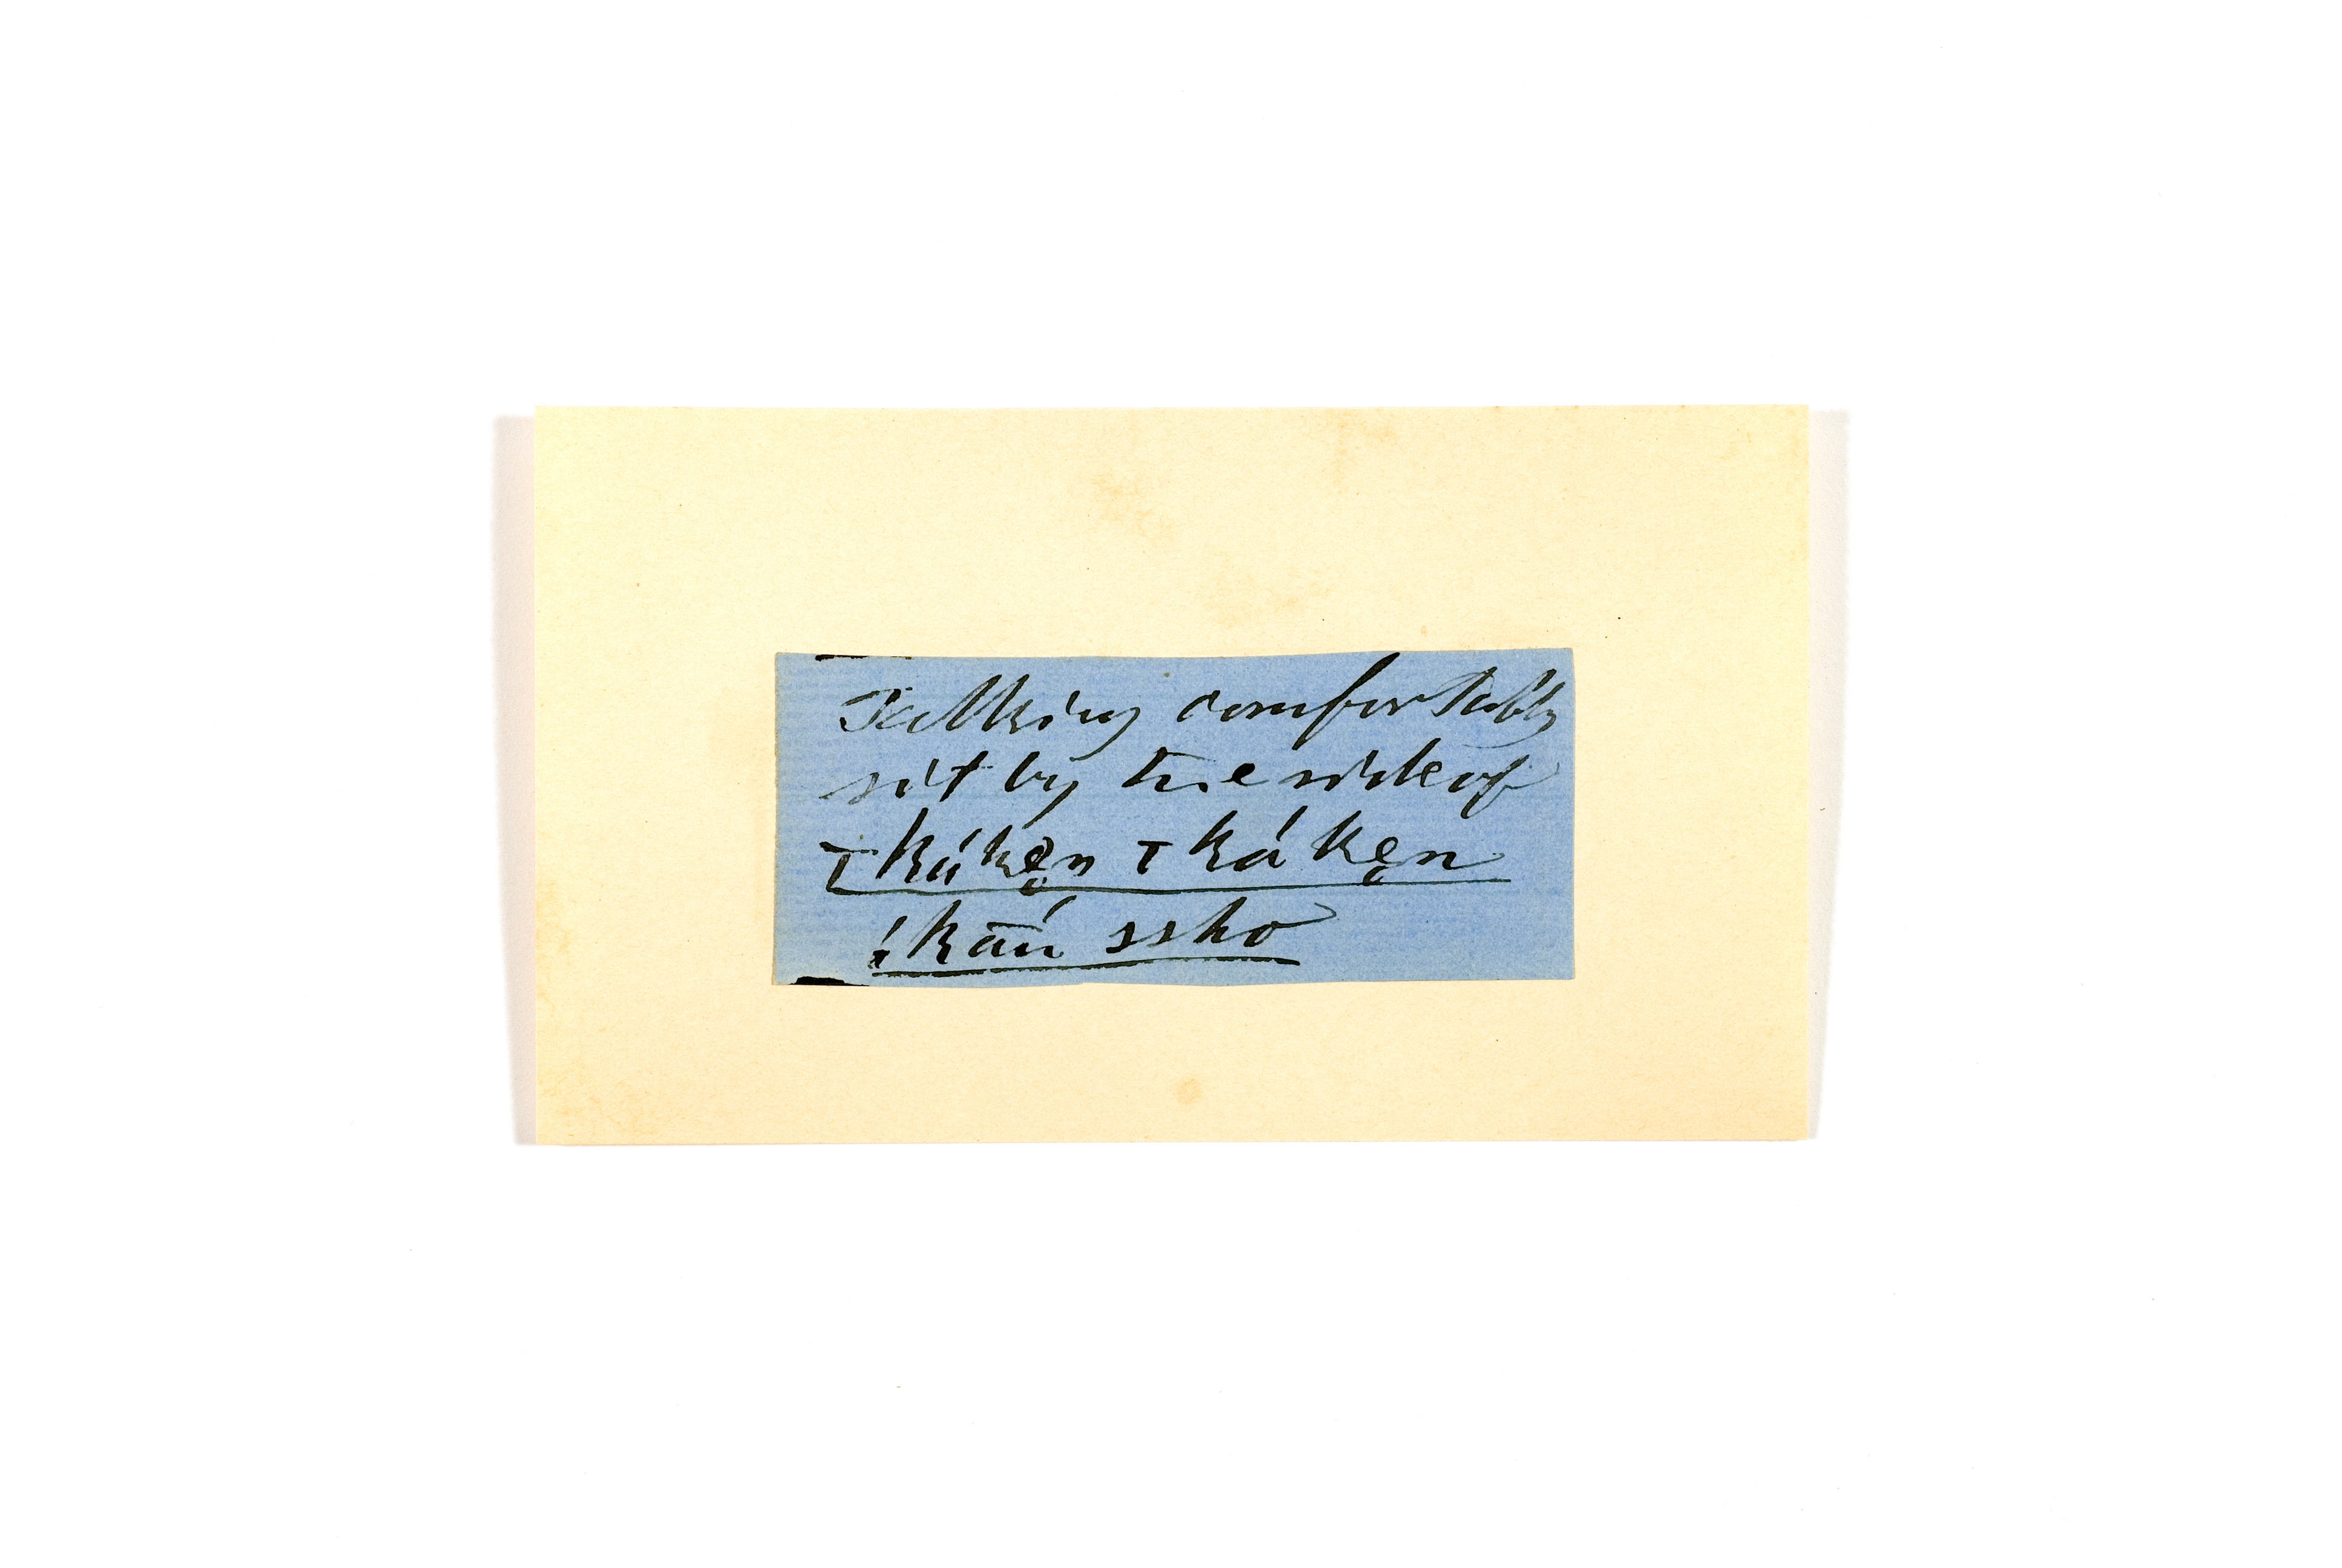 Talking comfortably
sit by the side of
τkákẹn τká kẹn
!kāń ssho